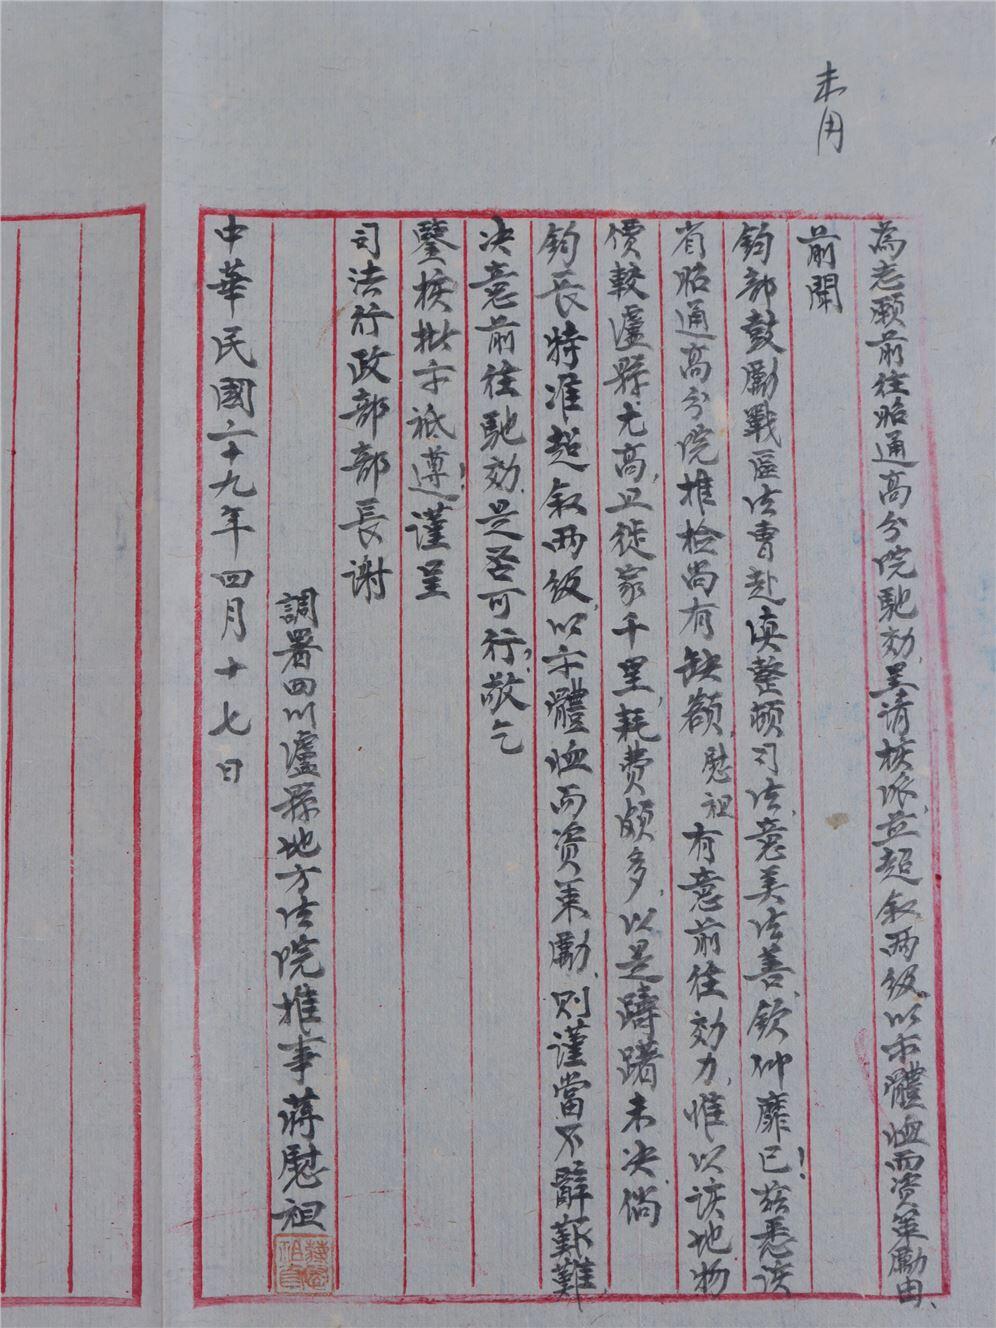 未用
為志願前往昭通高分院馳効、呈請核派、並超叙兩級、以示體恤而資策勵由、
前聞
鈞部鼓勵戰區法曹赴滇整頓司法、意美法善、欽仰靡已！茲悉該
省昭通高分院推檢尚有缺額、慰祖有意前往効力、惟以該地物
價較瀘縣尤高、且徙家千里、耗費頗多、以是躊躇未决、倘
鈞長特准超叙兩級、以示體恤而資策勵、則謹當不辭艱難、
决意前往馳効、是否可行、敬乞
鑒核批示祇遵！謹呈
司法行政部部長謝
調署四川瀘縣地方法院推事蔣慰祖
中華民國二十九年四月十七日